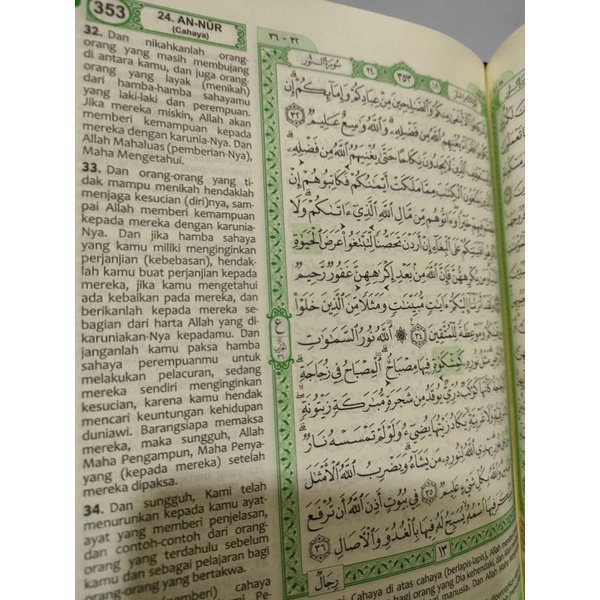 353
24. AN-NŪR
(Cahaya)
32. Dan nikahkanlah orang-
orang yang masih membujang
di antara kamu, dan juga orang-
orang yang layak (menikah)
dari hamba-hamba sahayamu
yang laki-laki dan perempuan.
Jika mereka miskin, Allah akan
memberi kemampuan kepada
mereka dengan karunia-Nya. Dan
Allah Mahaluas (pemberian-Nya),
Maha Mengetahui.
33. Dan orang-orang yang ti-
dak mampu menikah hendaklah
menjaga kesucian (diri)nya, sam-
pai Allah memberi kemampuan
kepada mereka dengan karunia-
Nya. Dan jika hamba sahaya
yang kamu miliki menginginkan
perjanjian (kebebasan), hendak-
lah kamu buat perjanjian kepada
mereka, jika kamu mengetahui
ada kebaikan pada mereka, dan
berikanlah kepada mereka se-
bagian dari harta Allah yang di-
karuniakan-Nya kepadamu. Dan
janganlah kamu paksa hamba
sahaya perempuanmu untuk
melakukan pelacuran, sedang
mereka sendiri menginginkan
kesucian, karena kamu hendak
mencari keuntungan kehidupan
duniawi. Barangsiapa memaksa
mereka, maka sungguh, Allah
Maha Pengampun, Maha Penya-
yang (kepada mereka) setelah
mereka dipaksa.
34. Dan sungguh, Kami telah
menurunkan kepada kamu ayat-
ayat yang memberi penjelasan,
dan contoh-contoh dari orang-
orang yang terdahulu sebelum
kamu dan sebagai pelajaran bagi
orang-orang yang bertakwa.
(memberi) cahaya
٣٢ - ٣٦
سُورَةُ النُّور
٢٤
٣٥٣
١٨
مِنْكُمْ وَالصّٰلِحِيْنَ مِنْ عِبَادِكُمْ وَاِمَاۤىِٕكُمْ اِنْ
يُغْنِهِمُ اللّٰهُ مِنْ فَضْلِهٖ وَاللّٰهُ وَاسِعٌ عَلِيْمٌ ٣٢
الَّذِيْنَ لَا يَجِدُوْنَ نِكَاحًا حَتّٰى يُغْنِيَهُمُ اللّٰهُ مِنْ فَضْلِهٖ
الْكِتٰبَ مِمَّا مَلَكَتْ اَيْمَانُكُمْ فَكَاتِبُوْهُمْ اِنْ
خَيْرًا وَّاٰتُوْهُمْ مِّنْ مَّالِ اللّٰهِ الَّذِيْٓ اٰتٰىكُمْ وَلَا
عَلَى الْبِغَاۤءِ اِنْ اَرَدْنَ تَحَصُّنًا لِّتَبْتَغُوْا عَرَضَ الْحَيٰوةِ
يُكْرِهْهُّنَّ فَاِنَّ اللّٰهَ مِنْۢ بَعْدِ اِكْرَاهِهِنَّ غَفُوْرٌ رَّحِيْمٌ
اِلَيْكُمْ اٰيٰتٍ مُّبَيِّنٰتٍ وَّمَثَلًا مِّنَ الَّذِيْنَ خَلَوْا
وَمَوْعِظَةً لِّلْمُتَّقِيْنَ ٣٤ اَللّٰهُ نُوْرُ السَّمٰوٰتِ
كَمِشْكٰوةٍ فِيْهَا مِصْبَاحٌ اَلْمِصْبَاحُ فِيْ زُجَاجَةٍ
كَاَنَّهَا كَوْكَبٌ دُرِّيٌّ يُّوْقَدُ مِنْ شَجَرَةٍ مُّبٰرَكَةٍ زَيْتُوْنَةٍ
غَرْبِيَّةٍ يَّكَادُ زَيْتُهَا يُضِيْۤءُ وَلَوْ لَمْ تَمْسَسْهُ نَارٌ
اللّٰهُ لِنُوْرِهٖ مَنْ يَّشَاۤءُ وَيَضْرِبُ اللّٰهُ الْاَمْثَالَ
بِكُلِّ شَيْءٍ عَلِيْمٌ ٣٥ فِيْ بُيُوْتٍ اَذِنَ اللّٰهُ اَنْ تُرْفَعَ
فِيْهَا اسْمُهٗ يُسَبِّحُ لَهٗ فِيْهَا بِالْغُدُوِّ وَالْاٰصَالِ ٣٦
ع
١٣
رِجَالٌ
Cahaya di atas cahaya (berlapis-lapis), Allah
bagi orang yang Dia kehendaki, dan
manusia. Dan Allah